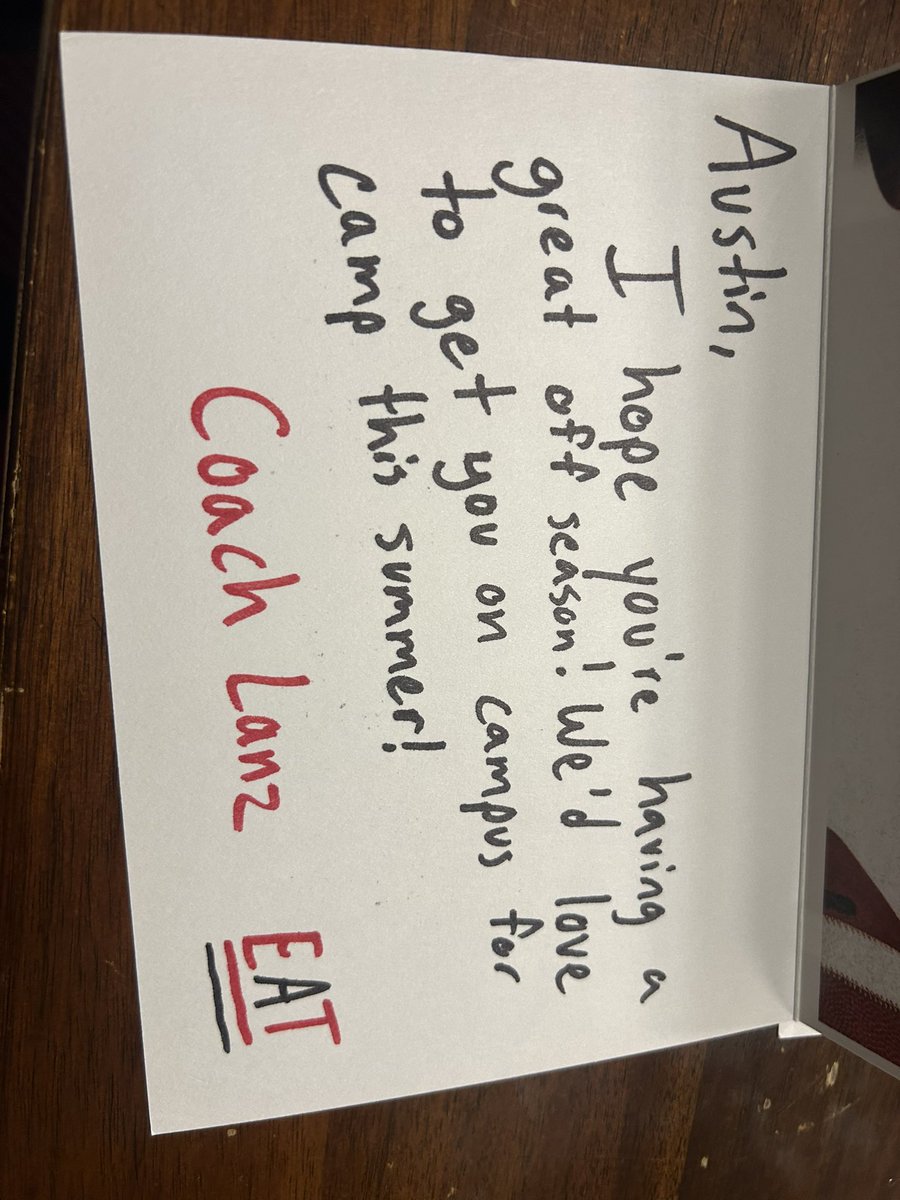 Austin,
I hope you're having a
great off season! We'd love
to get you on campus for
camp this summer!
Coach Lanz
EAT